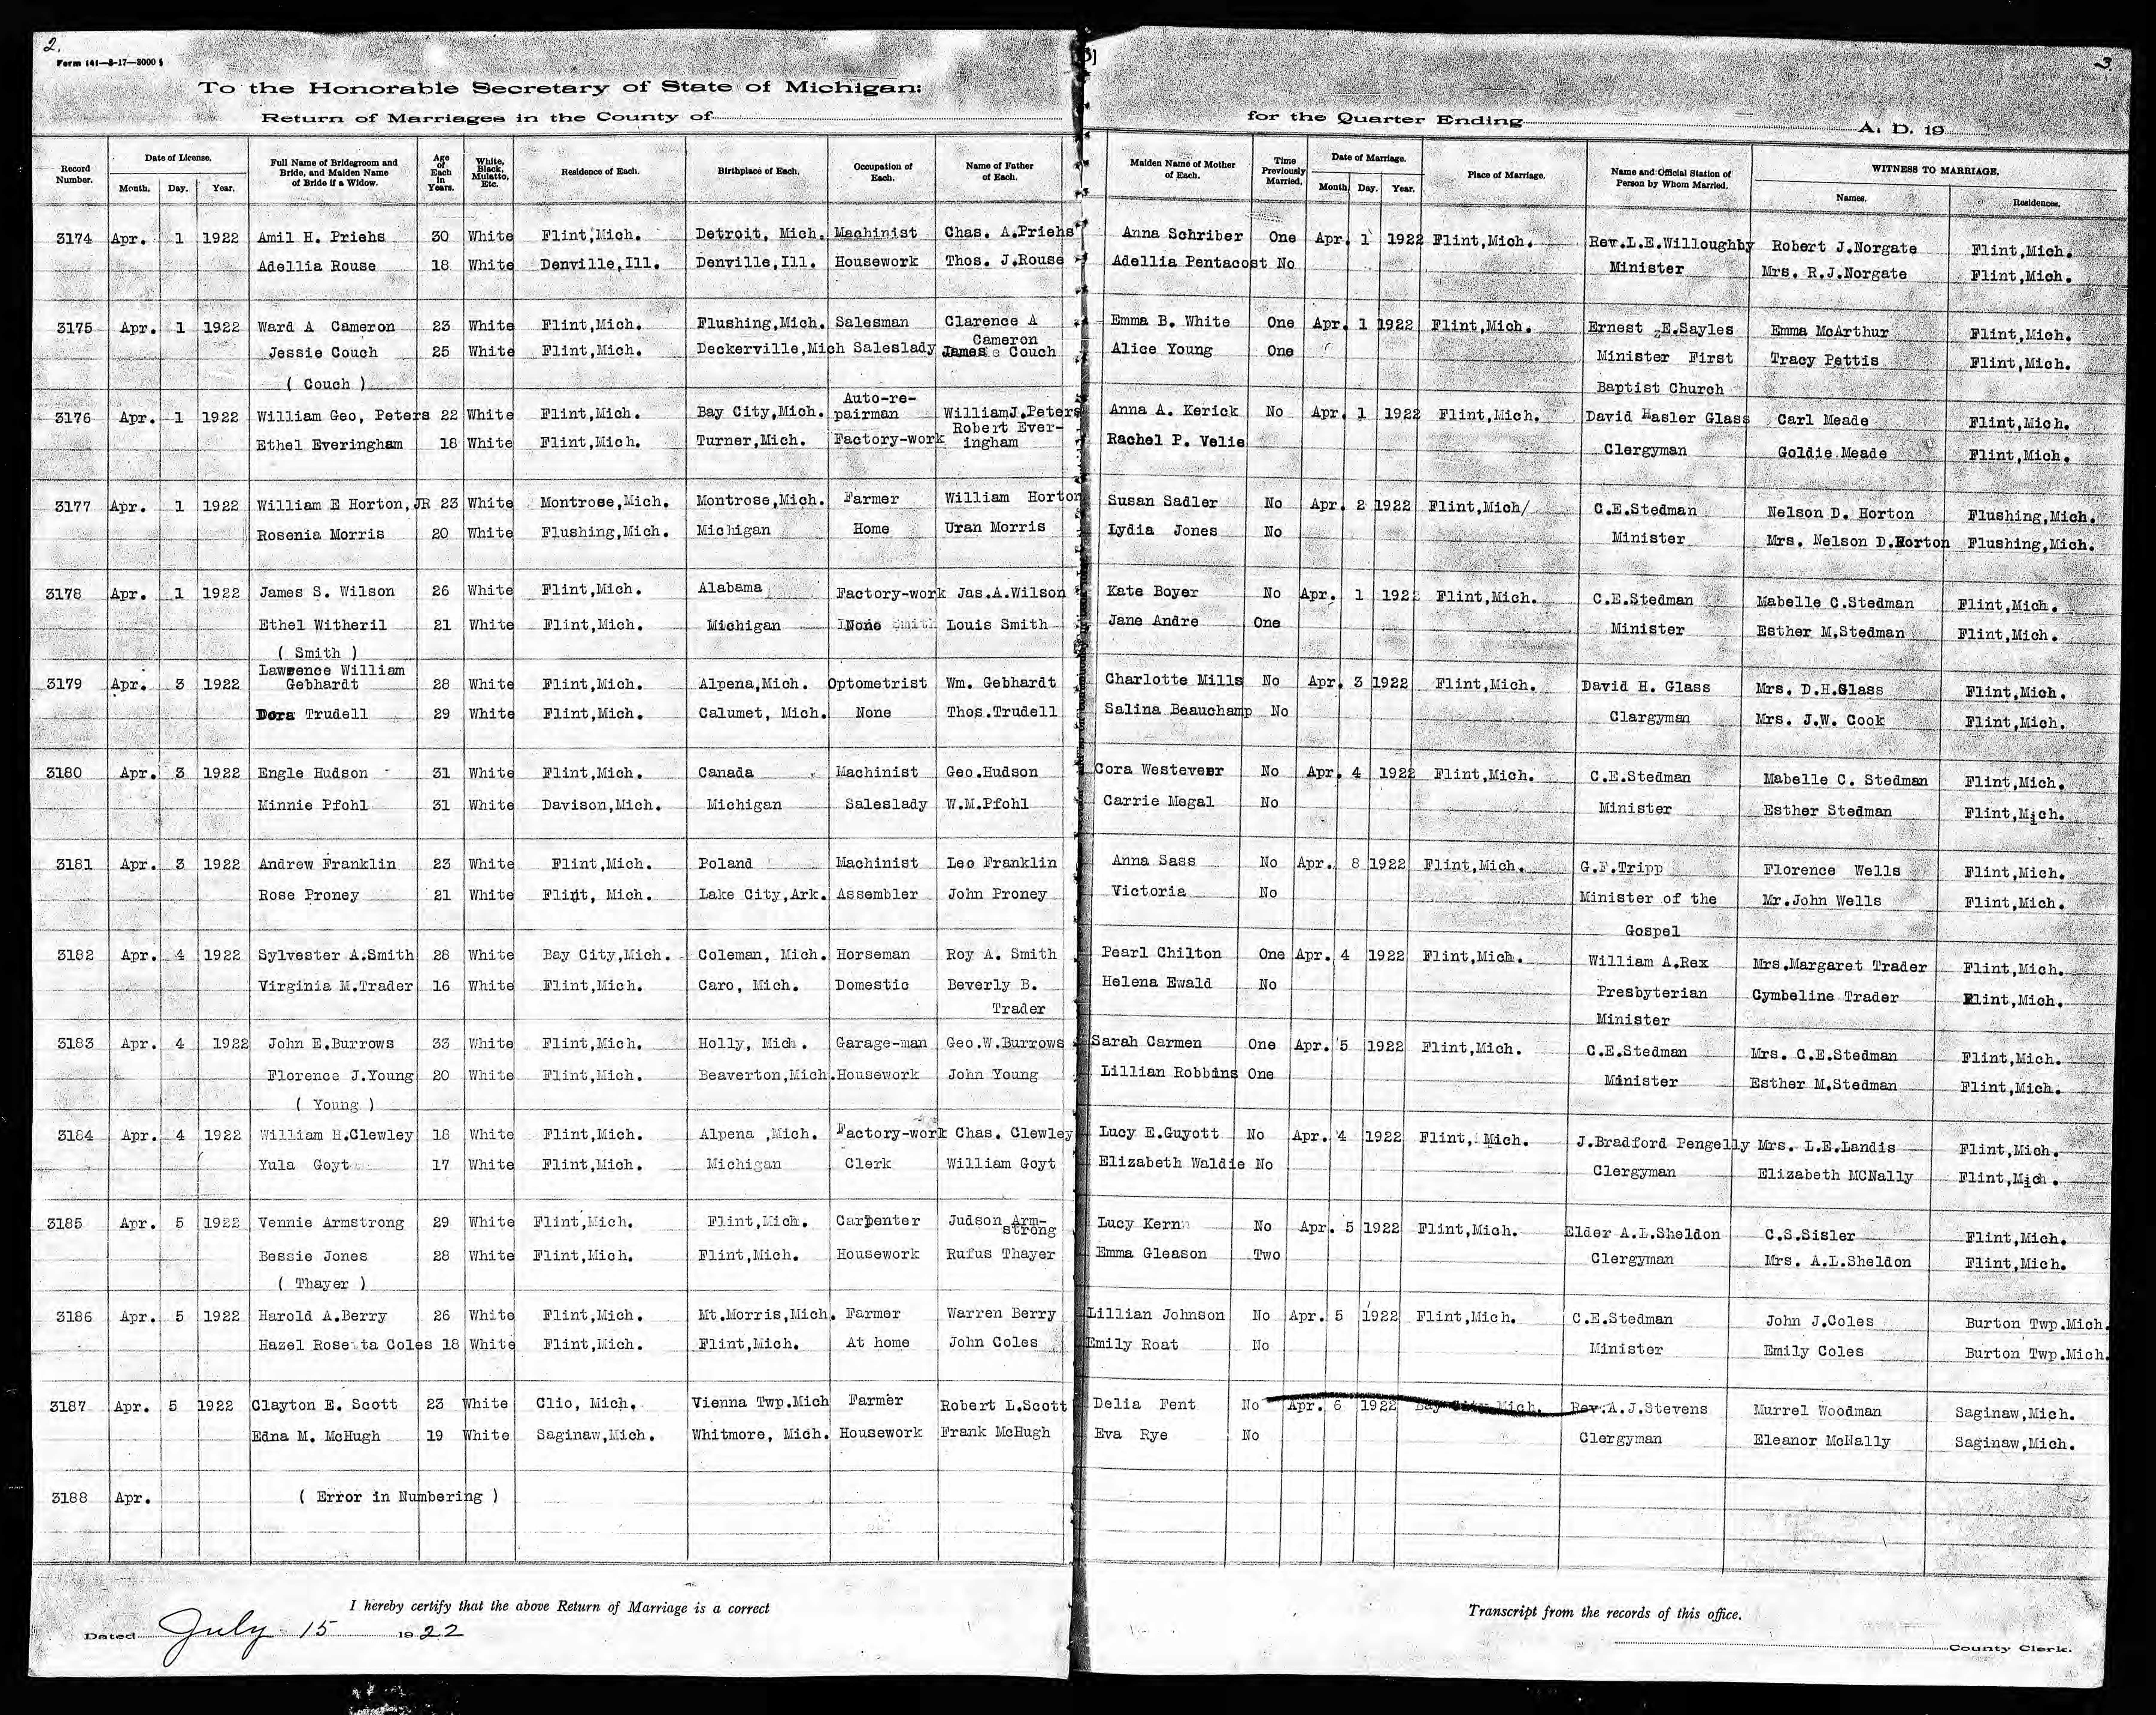 2.
3]
3.
Form 141—8-17—3000 s
To the Honorable Secretary of State of Michigan:
Return of Marriages in the County of
for the Quarter Ending
A. D. 19
Record Number. Date of License. Month. Day. Year. Full Name of Bridegroom and Bride, and Maiden Name of Bride if a Widow. Age of Each in Years. White, Black, Mulatto, Etc. Residence of Each. Birthplace of Each. Occupation of Each. Name of Father of Each. Maiden Name of Mother of Each. Time Previously Married. Date of Marriage. Month. Day. Year. Place of Marriage. Name and Official Station of Person by Whom Married. WITNESS TO MARRIAGE. Names. Residences.
3174 Apr. 1 1922 Amil H. Priehs 30 White Flint,Mich. Detroit, Mich. Machinist Chas. A.Priehs Anna Schriber One Apr. 1 1922 Flint,Mich. Rev.L.E.Willoughby Robert J.Norgate Flint,Mich.
Adellia Rouse 18 White Denville,Ill. Denville,Ill. Housework Thos. J.Rouse Adellia Pentacost No Minister Mrs. R.J.Norgate Flint,Mich.
3175 Apr. 1 1922 Ward A Cameron 23 White Flint,Mich. Flushing,Mich. Salesman Clarence A Cameron Emma B. White One Apr. 1 1922 Flint,Mich. Ernest E.Sayles Emma McArthur Flint,Mich.
Jessie Couch 25 White Flint,Mich. Deckerville,Mich Saleslady James Couch Alice Young One Minister First Tracy Pettis Flint,Mich.
( Couch ) Baptist Church
3176 Apr. 1 1922 William Geo, Peters 22 White Flint,Mich. Bay City,Mich. Auto-re-pairman WilliamJ.Peters Anna A. Kerick No Apr. 1 1922 Flint,Mich. David Hasler Glass Carl Meade Flint,Mich.
Ethel Everingham 18 White Flint,Mich. Turner,Mich. Factory-work Robert Ever-ingham Rachel P. Velie Clergyman Goldie Meade Flint,Mich.
3177 Apr. 1 1922 William E Horton,JR 23 White Montrose,Mich. Montrose,Mich. Farmer William Horton Susan Sadler No Apr. 2 1922 Flint,Mich/ C.E.Stedman Nelson D. Horton Flushing,Mich.
Rosenia Morris 20 White Flushing,Mich. Michigan Home Uran Morris Lydia Jones No Minister Mrs. Nelson D.Horton Flushing,Mich.
3178 Apr. 1 1922 James S. Wilson 26 White Flint,Mich. Alabama Factory-work Jas.A.Wilson Kate Boyer No Apr. 1 1922 Flint,Mich. C.E.Stedman Mabelle C.Stedman Flint,Mich.
Ethel Witheril 21 White Flint,Mich. Michigan None Louis Smith Jane Andre One Minister Esther M.Stedman Flint,Mich.
( Smith )
3179 Apr. 3 1922 Lawrence William Gebhardt 28 White Flint,Mich. Alpena,Mich. Optometrist Wm. Gebhardt Charlotte Mills No Apr. 3 1922 Flint,Mich. David H. Glass Mrs. D.H.Glass Flint,Mich.
Dora Trudell 29 White Flint,Mich. Calumet, Mich. None Thos.Trudell Salina Beauchamp No Clargyman Mrs. J.W. Cook Flint,Mich.
3180 Apr. 3 1922 Engle Hudson 31 White Flint,Mich. Canada Machinist Geo.Hudson Cora Westeveer No Apr. 4 1922 Flint,Mich. C.E.Stedman Mabelle C. Stedman Flint,Mich.
Minnie Pfohl 31 White Davison,Mich. Michigan Saleslady W.M.Pfohl Carrie Megal No Minister Esther Stedman Flint,Mich.
3181 Apr. 3 1922 Andrew Franklin 23 White Flint,Mich. Poland Machinist Leo Franklin Anna Sass No Apr. 8 1922 Flint,Mich. G.F.Tripp Florence Wells Flint,Mich.
Rose Proney 21 White Flint, Mich. Lake City,Ark. Assembler John Proney Victoria No Minister of the Mr.John Wells Flint,Mich.
Gospel
3182 Apr. 4 1922 Sylvester A.Smith 28 White Bay City,Mich. Coleman, Mich. Horseman Roy A. Smith Pearl Chilton One Apr. 4 1922 Flint,Mich. William A.Rex Mrs.Margaret Trader Flint,Mich.
Virginia M.Trader 16 White Flint,Mich. Caro, Mich. Domestic Beverly B. Helena Ewald No Presbyterian Cymbeline Trader Flint,Mich.
Trader Minister
3183 Apr. 4 1922 John E.Burrows 33 White Flint,Mich. Holly, Mich. Garage-man Geo.W.Burrows Sarah Carmen One Apr. 5 1922 Flint,Mich. C.E.Stedman Mrs. C.E.Stedman Flint,Mich.
Florence J.Young 20 White Flint,Mich. Beaverton,Mich. Housework John Young Lillian Robbins One Minister Esther M.Stedman Flint,Mich.
( Young )
3184 Apr. 4 1922 William H.Clewley 18 White Flint,Mich. Alpena ,Mich. Factory-work Chas. Clewley Lucy E.Guyott No Apr. 4 1922 Flint, Mich. J.Bradford Pengelly Mrs. L.E.Landis Flint,Mich.
Yula Goyt 17 White Flint,Mich. Michigan Clerk William Goyt Elizabeth Waldie No Clergyman Elizabeth MCNally Flint,Mich.
3185 Apr. 5 1922 Vennie Armstrong 29 White Flint,Mich. Flint,Mich. Carpenter Judson Arm-strong Lucy Kern No Apr. 5 1922 Flint,Mich. Elder A.L.Sheldon C.S.Sisler Flint,Mich.
Bessie Jones 28 White Flint,Mich. Flint,Mich. Housework Rufus Thayer Emma Gleason Two Clergyman Mrs. A.L.Sheldon Flint,Mich.
( Thayer )
3186 Apr. 5 1922 Harold A.Berry 26 White Flint,Mich. Mt.Morris,Mich. Farmer Warren Berry Lillian Johnson No Apr. 5 1922 Flint,Mich. C.E.Stedman John J.Coles Burton Twp.Mich.
Hazel Rosetta Coles 18 White Flint,Mich. Flint,Mich. At home John Coles Emily Roat No Minister Emily Coles Burton Twp.Mich.
3187 Apr. 5 1922 Clayton E. Scott 23 White Clio, Mich. Vienna Twp.Mich Farmer Robert L.Scott Delia Fent No Apr. 6 1922 Bay City Mich. Rev.A.J.Stevens Murrel Woodman Saginaw,Mich.
Edna M. McHugh 19 White Saginaw,Mich. Whitmore, Mich. Housework Frank McHugh Eva Rye No Clergyman Eleanor McNally Saginaw,Mich.
3188 Apr. ( Error in Numbering )
I hereby certify that the above Return of Marriage is a correct
Transcript from the records of this office.
Dated July 15 1922
County Clerk.